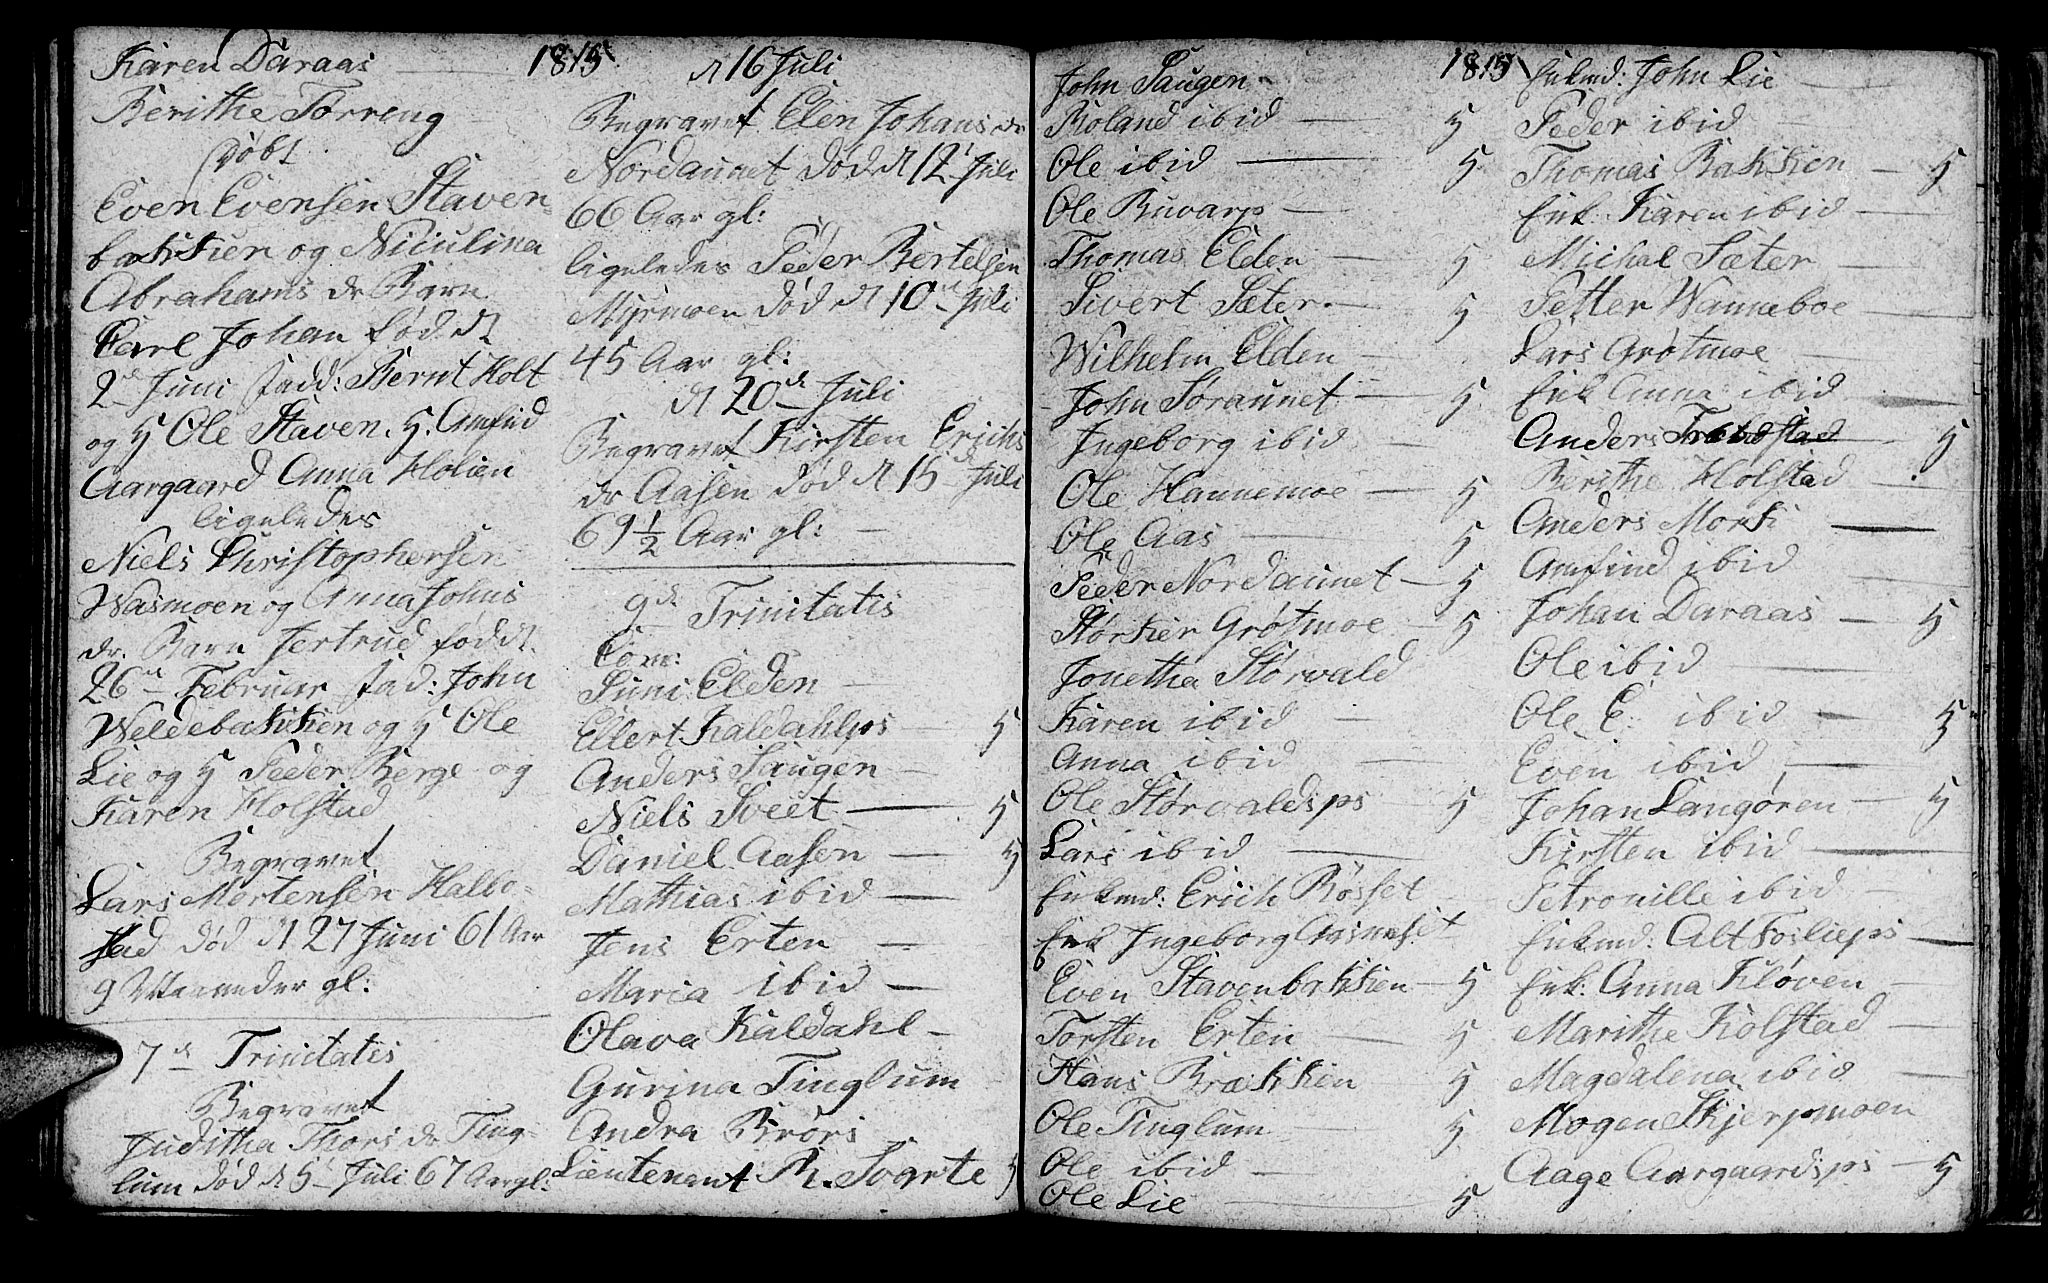 Karen Daraas
Berithe Torreng
Døbt
Even Evensen Staven-
bakken og Niculina
Abrahams dr Barn
Carl Johan fød d
2d Juni fadd: Bernt Holt
og H Ole Staven. H. Amfind
Aargaard Anna Holien
ligeledes
Niels Christophersen
Wasmoen og Anna Johns
dr. Barn Jertrud fød d.
26de Februar fad: John
Weldebakken og H Ole
Lie og H Peder Berge og
Karen Holstad
Begravet
Lars Mortensen Halbo-
stad død d 27 Juni 61 Aar
9 Maaneder gl:
7de Trinitatis
Begravet
Juditha Thors dr Ting-
lum død d 5t Juli 67 Aar gl:
1815
d 16 Juli
Begravet Elen Johans dr
Nordaunet død d 12t Juli
66 Aar gl:
ligeledes Peder Bertelsen
Myrmoen død d 10de Juli
45 Aar gl:
d 20de Juli
Begravet Kirsten Erichs
dr Aasen død d 15d Juli
69 1/2 Aar gl:
9de Trinitatis
Com:
Suni Elden
Ellert Kaldahlps H
Anders Saugen
Niels Sveet H
Daniel Aasen H
Mathias ibid
Jens Erten
Maria ibid
Olava Kaldahl
Gurina Tinglum
Andra Brørs
Lieutenant R. Svarte H
1815
John Saugen
Roland ibid H
Ole ibid H
Ole Buvarp
Thomas Elden H
Sivert Sæter H
Wilhelm Elden
John Søraunet H
Ingeborg ibid
Ole Hannemoe H
Ole Aas H
Peder Nordaunet H
Størker Grøtmoe H
Jonetha Størvald
Karen ibid
Anna ibid
Ole Størvaldsps H
Lars ibid
Enkmd: Erich Røsset
Enk Ingeborg Aasneset
Even Stavenbakken H
Torsten Erten H
Hans Brækken H
Ole Tinglum H
Ole ibid
Ole Lie H
Enkmd: John Lie
Peder ibid
Thomas Bakken H
Enk. Karen ibid
Michal Sæter
Petter Wanneboe
Lars Grøtmoe
Enk Anna ibid
Anders H
Berithe Holstad
Anders Mork
Amfind ibid
Johan Daraas H
Ole ibid
Ole E. ibid H
Even ibid
Johan Langøren H
Kirsten ibid
Petronille ibid
Enkmd: Alt Foslieps
Enk: Anna Kløven
Marithe Holstad
Magdalena ibid
Mogen Skjerpmoen
Aage Aargaardsps H